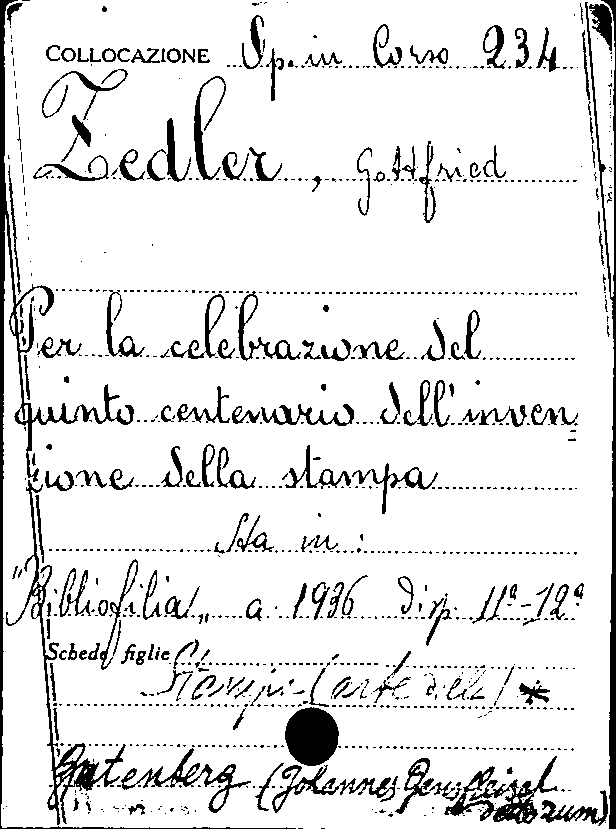 COLLOCAZIONE Op. in Corso 234
Zedler, Gottfried
Per la celebrazione del
quinto centenario dell'inven=
zione della stampa
Sta in:
"Bibliofilia" a. 1936 disp. 11ª-12ª
Schede figlie Stampa (arte della) *
Gutenberg (Johannes Gensfleisch
detto zum)